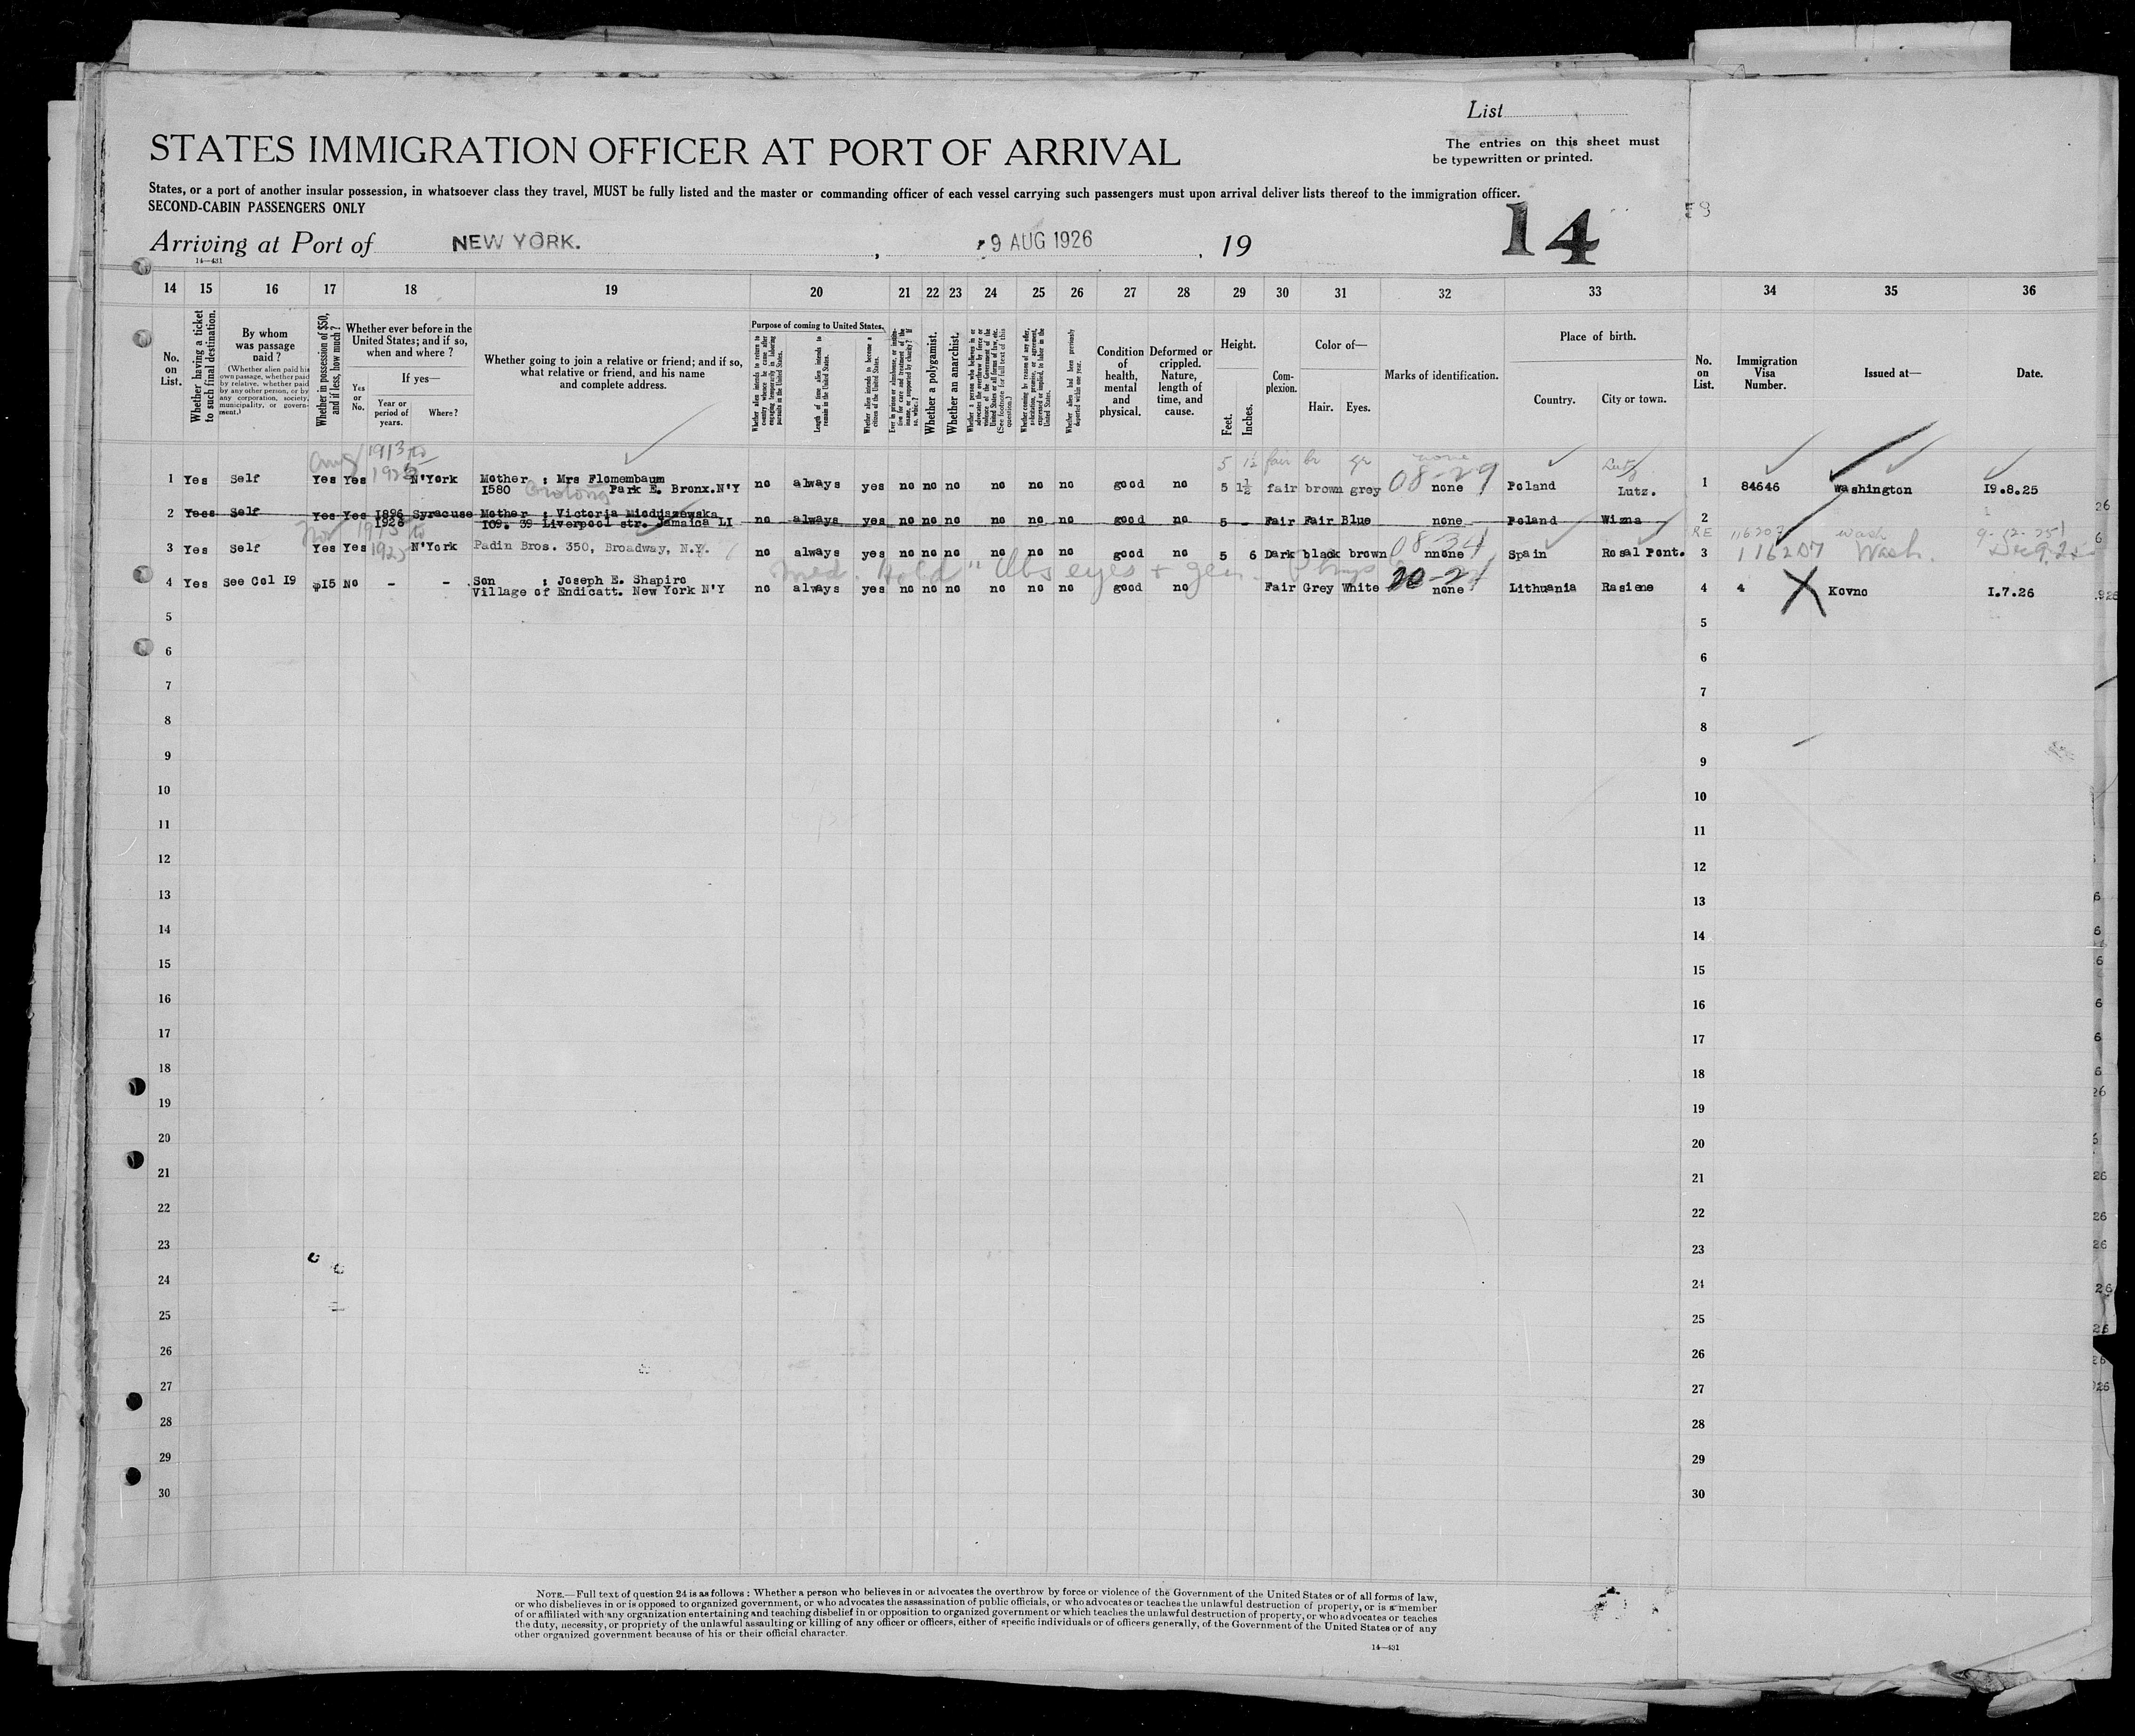 List
The entries on this sheet must
be typewritten or printed.
STATES IMMIGRATION OFFICER AT PORT OF ARRIVAL
States, or a port of another insular possession, in whatsoever class they travel, MUST be fully listed and the master or commanding officer of each vessel carrying such passengers must upon arrival deliver lists thereof to the immigration officer.
SECOND-CABIN PASSENGERS ONLY
Arriving at Port of NEW YORK. , 9 AUG 1926 , 19
14
14—431
14 15 16 17 18 19 20 21 22 23 24 25 26 27 28 29 30 31 32 33 34 35 36
No. on List.
Whether having a ticket to such final destination.
By whom was passage paid?
(Whether alien paid his own passage, whether paid by relative, whether paid by any other person, or by any corporation, society, municipality, or government.)
Whether in possession of $50, and if less, how much?
Whether ever before in the United States; and if so, when and where?
Yes or No.
If yes—
Year or period of years.
Where?
Whether going to join a relative or friend; and if so, what relative or friend, and his name and complete address.
Purpose of coming to United States.
Whether alien intends to return to country whence he came after engaging temporarily in laboring pursuits in the United States.
Length of time alien intends to remain in the United States.
Whether alien intends to become a citizen of the United States.
Ever in prison or almshouse, or institution for care and treatment of the insane, or supported by charity? If so, which?
Whether a polygamist.
Whether an anarchist.
Whether a person who believes in or advocates the overthrow by force or violence of the Government of the United States or all forms of law, etc. (See footnote for full text of this question.)
Whether coming by reason of any offer, solicitation, promise, or agreement, expressed or implied, to labor in the United States.
Whether alien had been previously deported within one year.
Condition of health, mental and physical.
Deformed or crippled. Nature, length of time, and cause.
Height.
Feet.
Inches.
Complexion.
Color of—
Hair.
Eyes.
Marks of identification.
Place of birth.
Country.
City or town.
No. on List.
Immigration Visa Number.
Issued at—
Date.
Aug 1913 to 5 1½ fair br gr none Lutz
1 Yes Self Yes Yes N'York Mother : Mrs Flomembaum no always yes no no no no no no good no 5 1½ fair brown grey none Poland Lutz. 1 84646 Washington 19.8.25
1580 Park E. Bronx.N'Y 08-29
2 Yees Self Yes Yes 1896 Syracuse Mother : Victoria Mioduszewska no always yes no no no no no no good no 5 - Fair Fair Blue none Poland Wizna 2
1926 109. 39 Liverpool str. Jamaica LI
Nov 1913 to RE 116207 Wash 9-12-25
3 Yes Self Yes Yes 1925 N'York Padin Bros. 350, Broadway, N.Y. no always yes no no no no no no good no 5 6 Dark black brown nnone Spain Rosal Pont. 3 116207 Wash. Dec 9.25
08-34
Med. Hold "Obs eyes + gen.
4 Yes See Col 19 $15 No - - Son : Joseph E. Shapiro no always yes no no no no no no good no Fair Grey White none Lithuania Rasiene 4 4 Kovno 1.7.26
Village of Endicatt. New York N'Y
5 5
6 6
7 7
8 8
9 9
10 10
11 11
12 12
13 13
14 14
15 15
16 16
17 17
18 18
19 19
20 20
21 21
22 22
23 23
24 24
25 25
26 26
27 27
28 28
29 29
30 30
NOTE.—Full text of question 24 is as follows: Whether a person who believes in or advocates the overthrow by force or violence of the Government of the United States or of all forms of law,
or who disbelieves in or is opposed to organized government, or who advocates the assassination of public officials, or who advocates or teaches the unlawful destruction of property, or is a member
of or affiliated with any organization entertaining and teaching disbelief in or opposition to organized government or which teaches the unlawful destruction of property, or who advocates or teaches
the duty, necessity, or propriety of the unlawful assaulting or killing of any officer or officers, either of specific individuals or of officers generally, of the Government of the United States or of any
other organized government because of his or their official character.
14—431